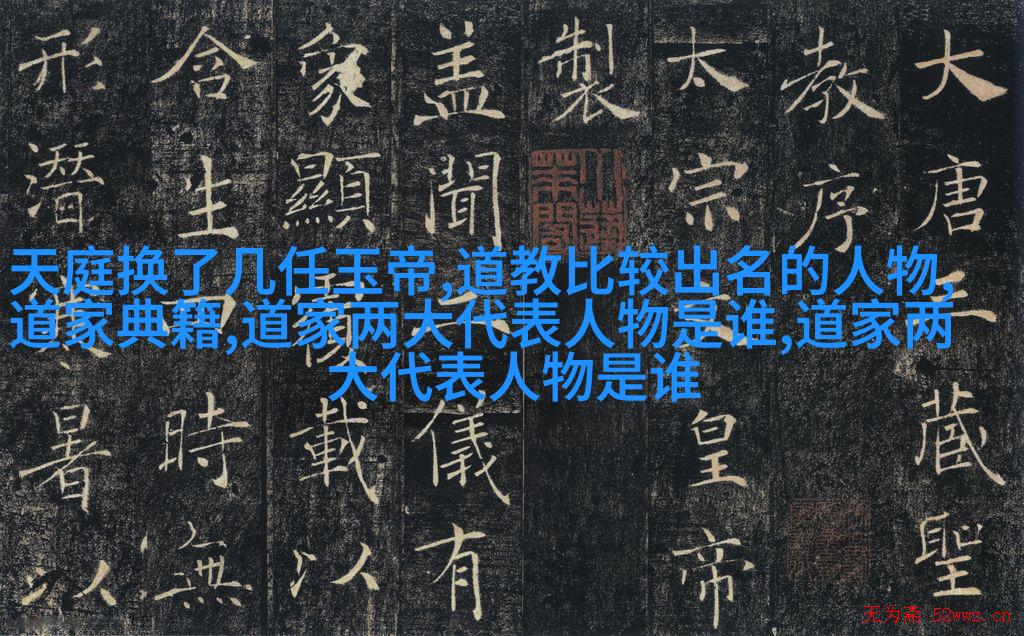 天庭换了几任玉帝,道教比较出名的人物,
道家典籍,道家两大代表人物是谁,道家两
大代表人物是谁
大唐三藏聖
教序
太宗文皇帝
製
盖聞二儀有
象顯覆載以
含生四時無
形潛寒暑以
无为斋 52wwz.cn